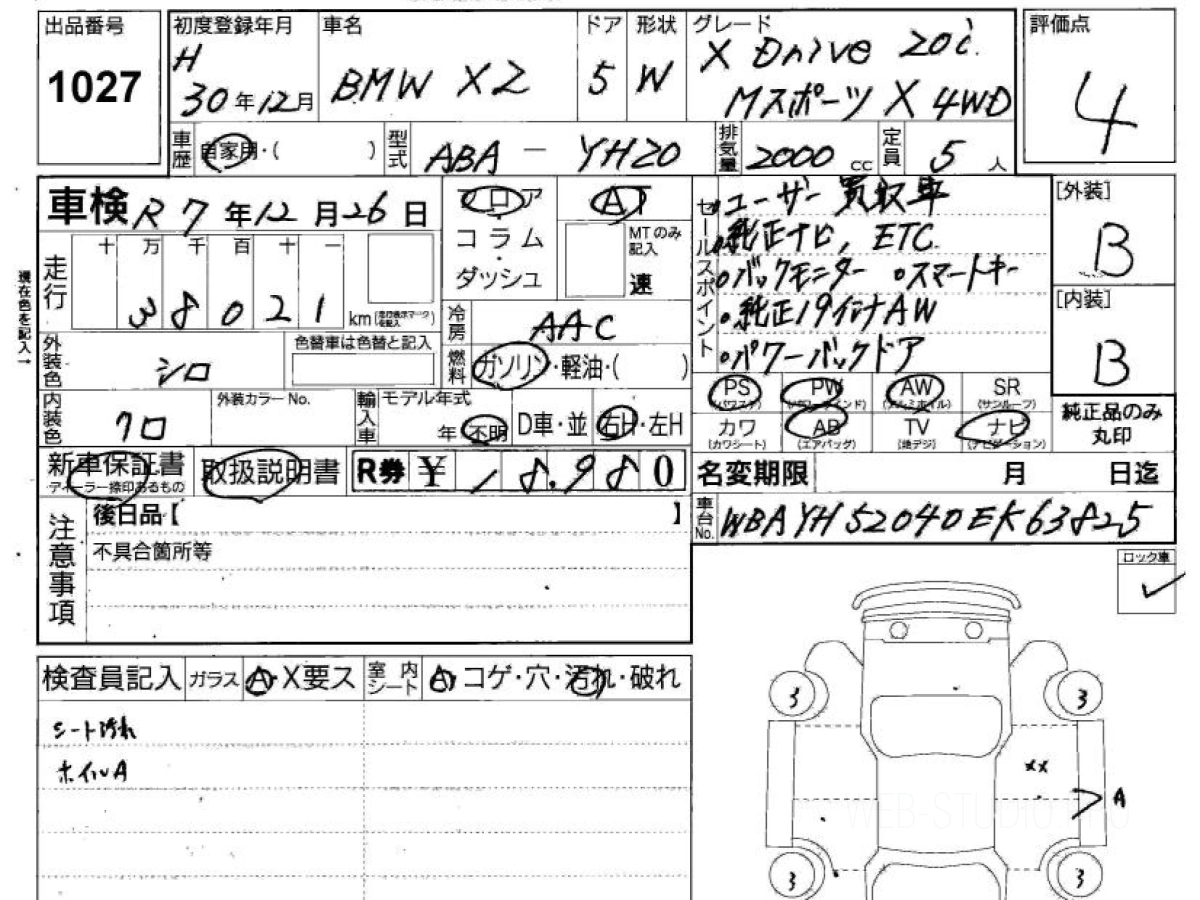 出品番号
1027
初度登録年月
H
30年12月
車名
BMW X2
ドア
5
形状
W
グレード
X Drive 20i.
Mスポーツ X 4WD
評価点
4
車歴
自家用・( )
型式
ABA - YH20
排気量
2000 cc
定員
5 人
車検 R 7 年 12 月 26 日
フロア
コラム
ダッシュ
AT
MTのみ記入
速
セールスポイント
・ユーザー買取車
・純正ナビ, ETC.
・バックモニター ・スマートキー
・純正19インチAW
・パワーバックドア
[外装]
B
[内装]
B
純正品のみ
丸印
現在色を記入→
走行
十 万 千 百 十 一
3 8 0 2 1 km
(走行表示マークを記入)
冷房
AAC
外装色
シロ
色替車は色替と記入
燃料
ガソリン・軽油・( )
内装色
クロ
外装カラーNo.
輸入車
モデル年式
年・不明
D車・並
右H・左H
PS
(パワステ)
PW
(パワーウインド)
AW
(アルミホイル)
SR
(サンルーフ)
カワ
(カワシート)
AB
(エアバッグ)
TV
(地デジ)
ナビ
(ナビゲーション)
新車保証書
ディーラー捺印あるもの
取扱説明書
R券 ¥ 18.980
名変期限 月 日迄
車台No.
WBAYH52040EK63825
注意事項
後日品【 】
不具合箇所等
ロック車
✓
検査員記入
ガラス
A・X要ス
室内シート
A・コゲ・穴・汚れ・破れ
シート汚れ
ホイルA
3
3
xx
A
3
3
WEB-STUDIO.PRO